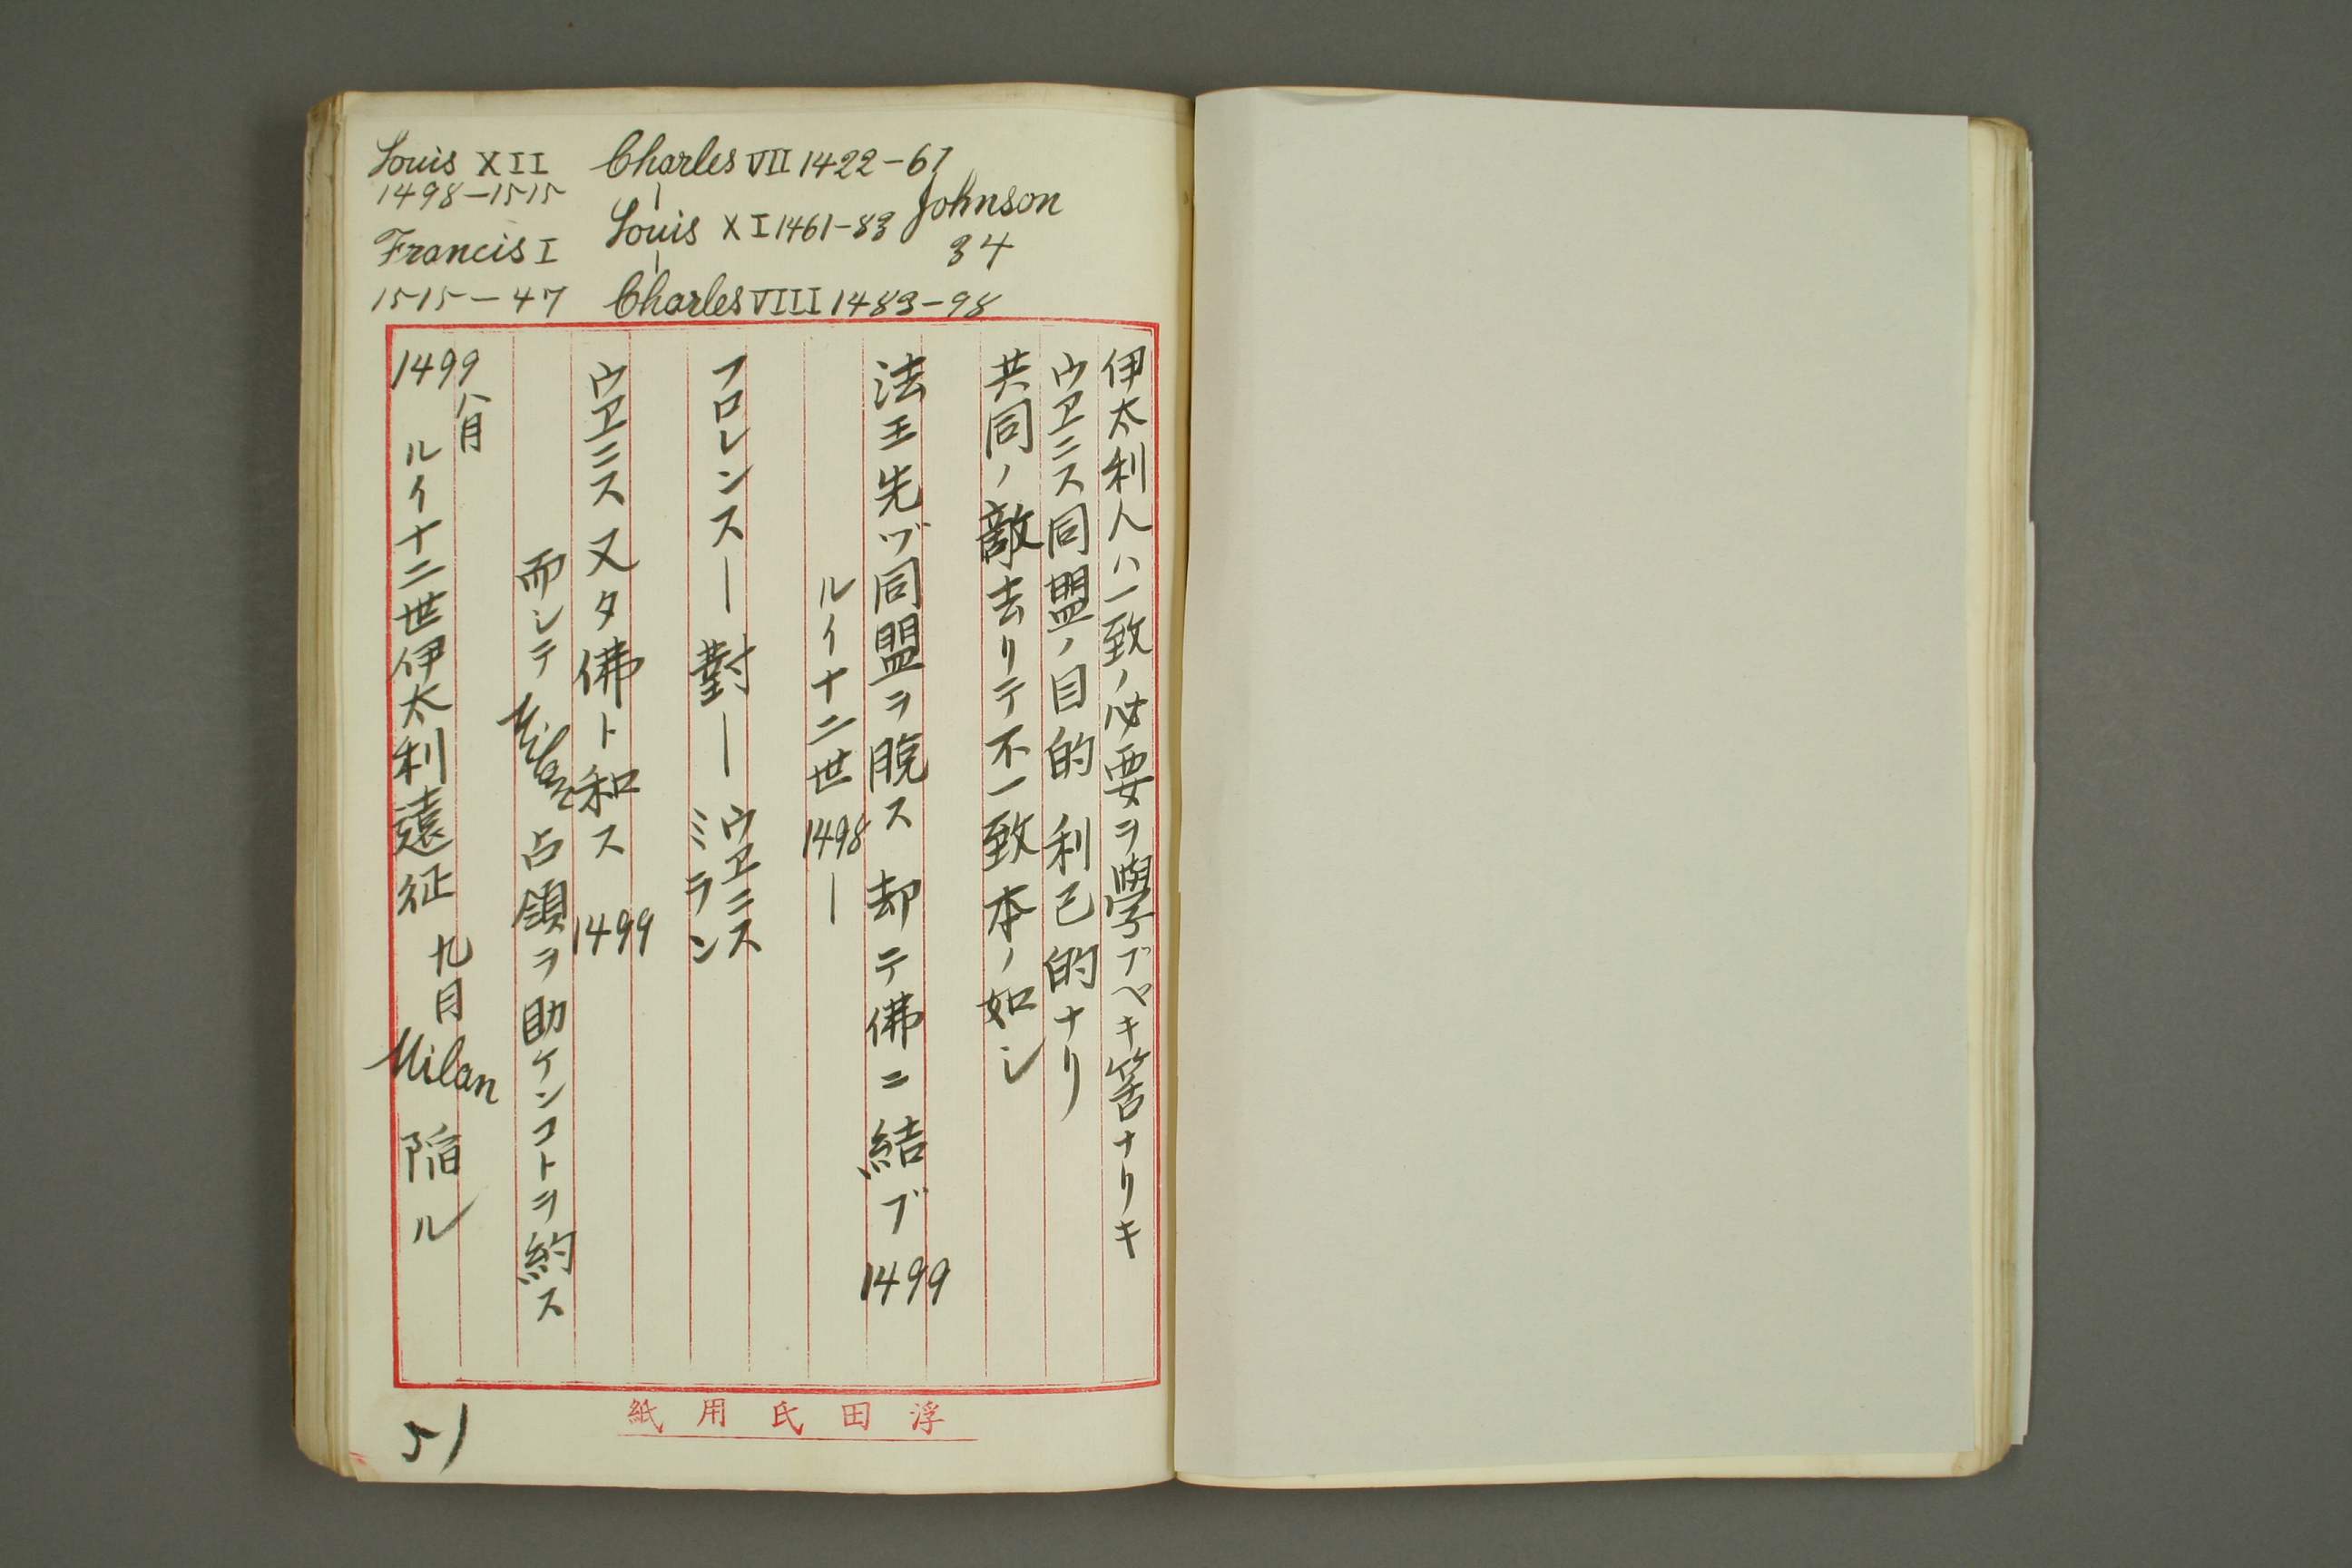 Louis XII
1498-1515
Francis I
1515-47
Charles VII 1422-61
Louis XI 1461-83
Charles VIII 1483-98
Johnson
34
伊太利人ハ一致ノ必要ヲ學ブベキ筈ナリキ
ウヱニス同盟ノ目的 利己的ナリ
共同ノ敵去リテ不一致本ノ如シ
法王先ヅ同盟ヲ脱ス 却テ佛ニ結ブ 1499
ルイ十二世 1498—
フロレンス—對—ウヱニス
ミラン
ウヱニス又タ佛ト和ス 1499
而シテ Milan 占領ヲ助ケンコトヲ約ス
1499 八月
ルイ十二世伊太利遠征 九月 Milan 陷ル
浮田氏用紙
51